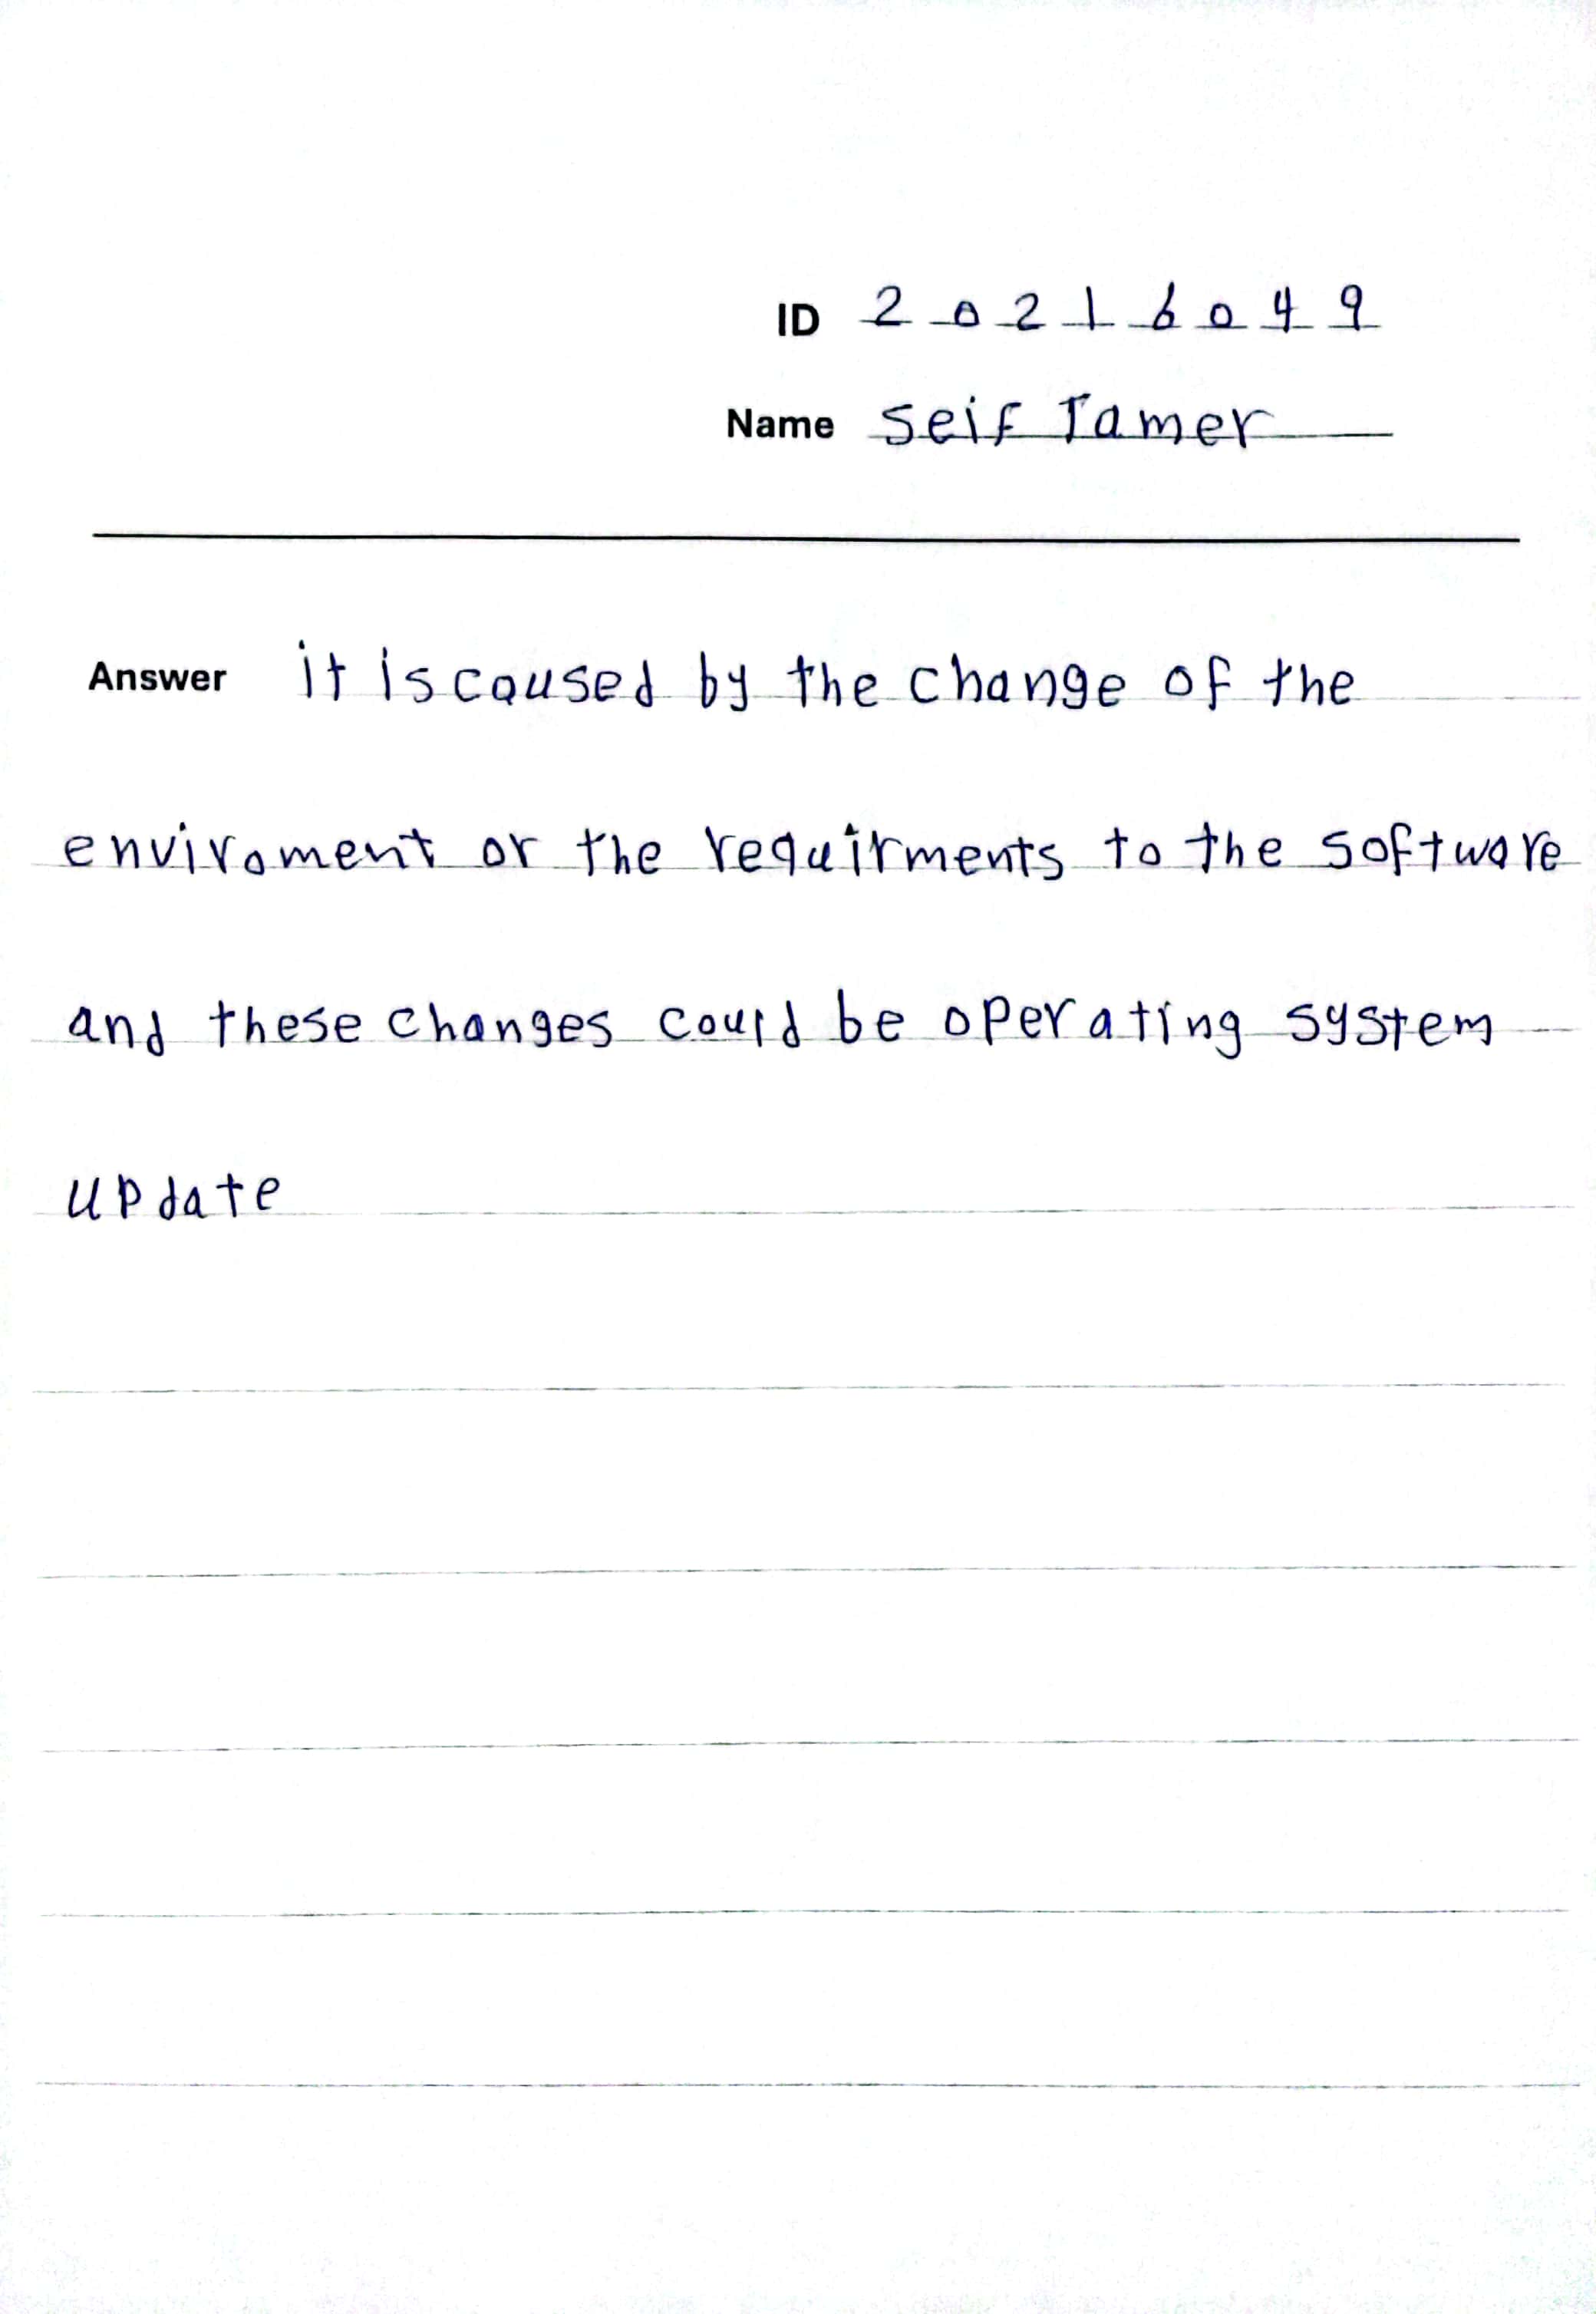 ID 20216049
Name seif Tamer
Answer it is caused by the change of the
enviroment or the requirments to the software
and these changes could be operating system
update